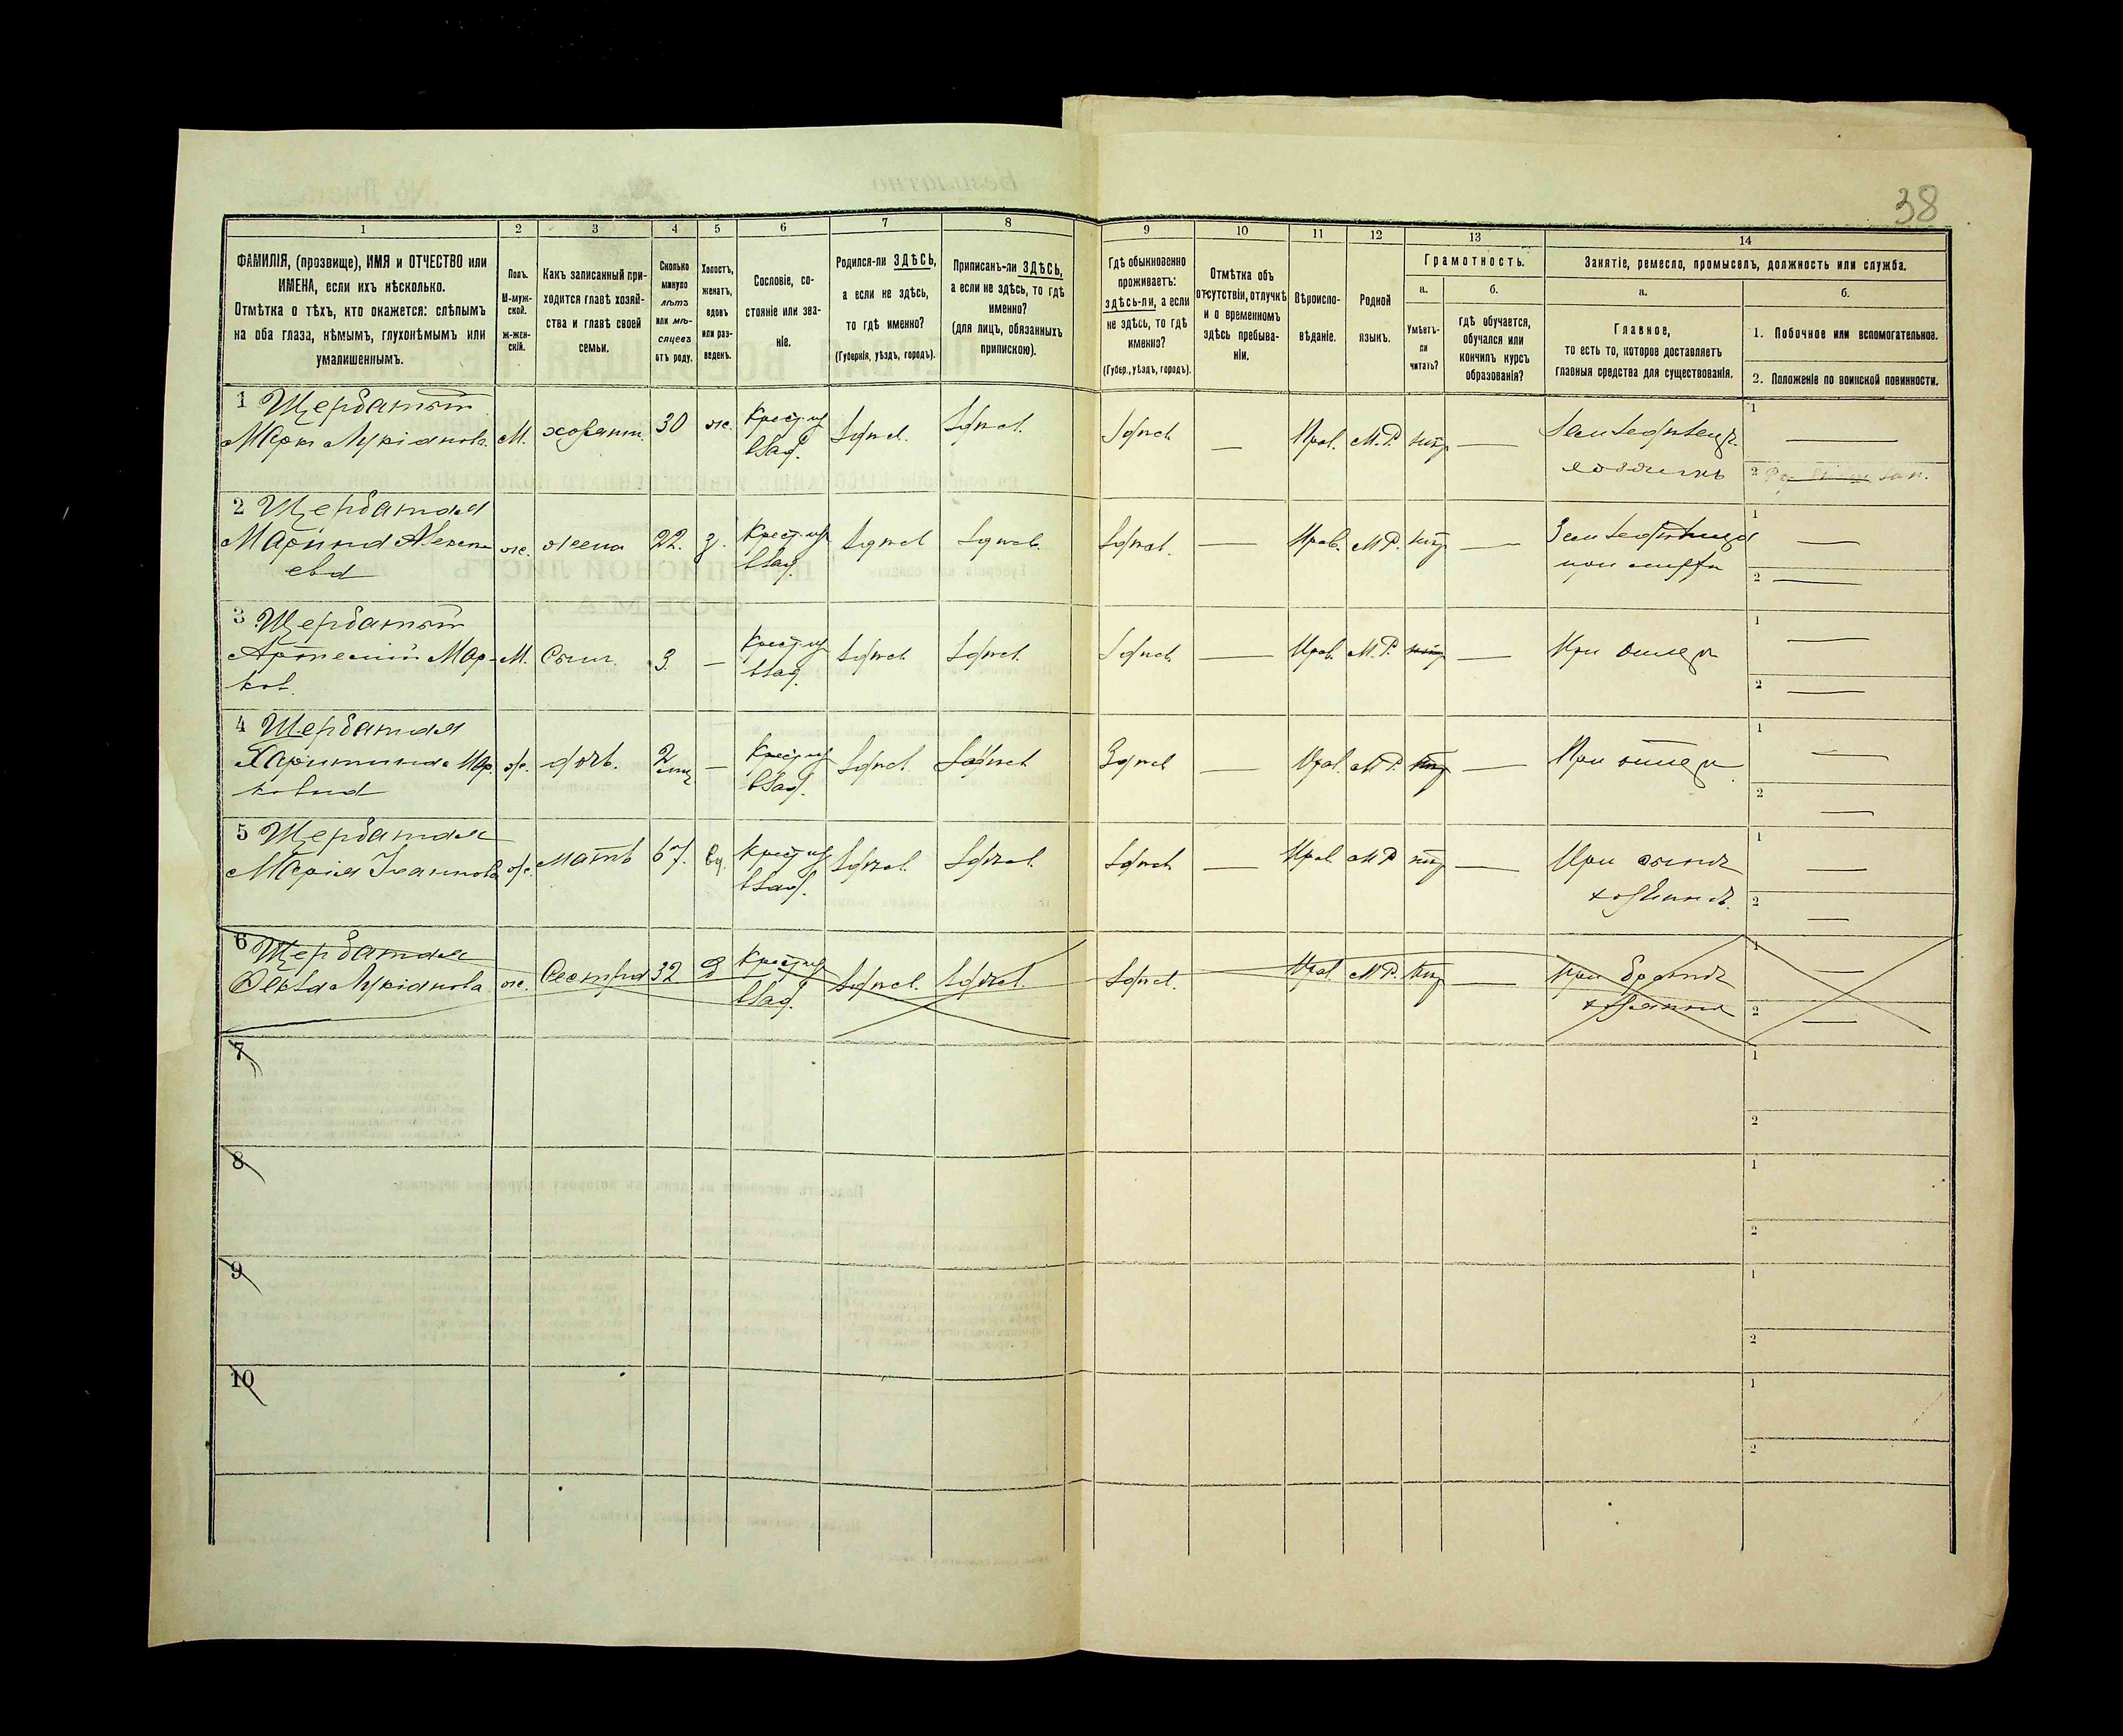 38
1
2
3
4
5
6
7
8
9
10
11
12
13
14
ФАМИЛІЯ, (прозвище), ИМЯ и ОТЧЕСТВО или
ИМЕНА, если ихъ нѣсколько.
Отмѣтка о тѣхъ, кто окажется: слѣпымъ
на оба глаза, нѣмымъ, глухонѣмымъ или
умалишеннымъ.
Полъ.
М-муж-
ской.
Ж-жен-
скій.
Какъ записанный при-
ходится главѣ хозяй-
ства и главѣ своей
семьи.
Сколько
минуло
лѣтъ
или мѣ-
сяцевъ
отъ роду.
Холостъ,
женатъ,
вдовъ
или раз-
веденъ.
Сословіе, со-
стояніе или зва-
ніе.
Родился-ли ЗДѢСЬ,
а если не здѣсь,
то гдѣ именно?
(Губернія, уѣздъ, городъ).
Приписанъ-ли ЗДѢСЬ,
а если не здѣсь, то гдѣ
именно?
(для лицъ, обязанныхъ
припискою).
Гдѣ обыкновенно
проживаетъ:
здѣсь-ли, а если
не здѣсь, то гдѣ
именно?
(Губер., уѣздъ, городъ).
Отмѣтка объ
отсутствіи, отлучкѣ
и о временномъ
здѣсь пребыва-
ніи.
Вѣроиспо-
вѣданіе.
Родной
языкъ.
Грамотность.
а.
б.
Умѣетъ-
ли
читать?
гдѣ обучается,
обучался или
кончилъ курсъ
образованія?
Занятіе, ремесло, промыселъ, должность или служба.
а.
б.
Главное,
то есть то, которое доставляетъ
главныя средства для существованія.
1. Побочное или вспомогательное.
2. Положеніе по воинской повинности.
1 Щербатый
Маркъ Лукіановъ М. хозяинъ 30 ж. Крест. из влад. Здѣсь Здѣсь Здѣсь — Прав. М.Р. нѣтъ — Земледѣлецъ
1 —
2
2 Щербатая
Марина ж. жена 22. з. Крест. из влад. Здѣсь Здѣсь Здѣсь — Прав. М.Р. нѣтъ — Земледѣлица
при мужѣ
1 —
2 —
3 Щербатый
Артемій Мар-
ковъ М. Сынъ 3 — Крест. из влад. Здѣсь Здѣсь Здѣсь — Прав. М.Р. нѣтъ — При отцѣ
1 —
2 —
4 Щербатая
Харитина Мар-
кова ж. дочь. 2 мѣс — Крест. из влад. Здѣсь Здѣсь Здѣсь — Прав. М.Р. нѣтъ — При отцѣ
1 —
2 —
5 Щербатая
Марія Іваннова ж. мать 67. вд. Крест. из влад. Здѣсь Здѣсь Здѣсь — Прав. М.Р. нѣтъ — При сынѣ
хозяинѣ
1 —
2 —
6 Щербатая
Фекла Лукіанова ж. Сестра 32 д Крест. из влад. Здѣсь Здѣсь Здѣсь — Прав. М.Р. нѣтъ — При братѣ
хозяинѣ
1 —
2 —
7
1
2
8
1
2
9
1
2
10
1
2